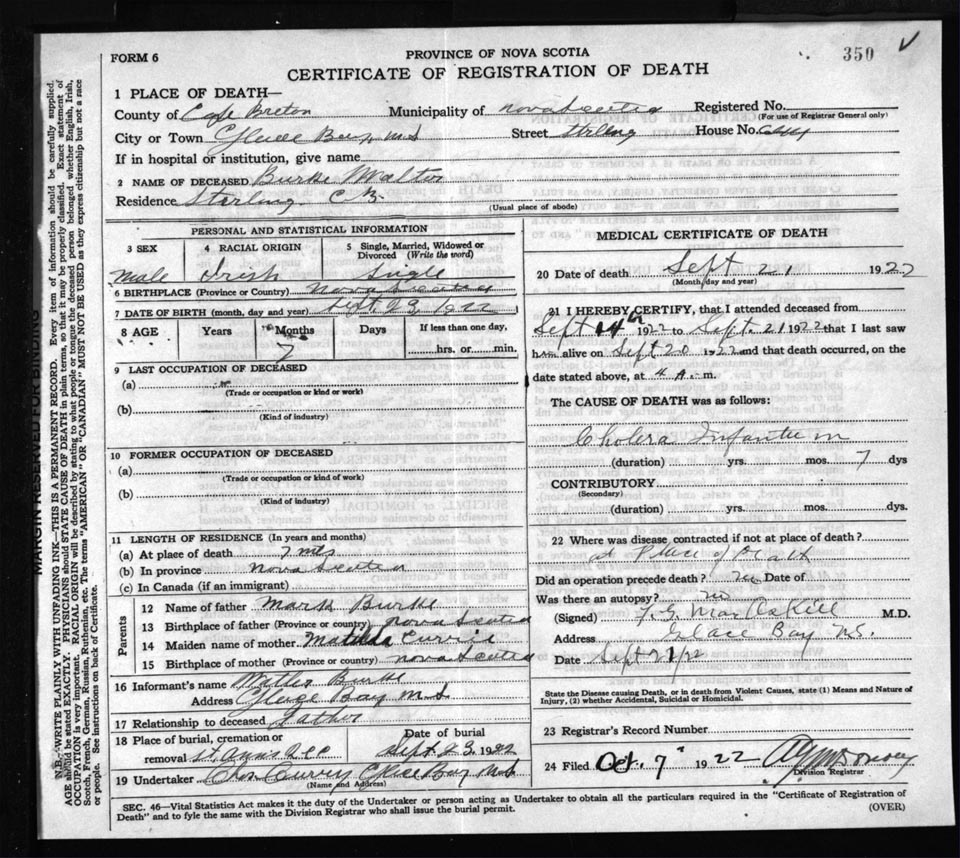 FORM 6
PROVINCE OF NOVA SCOTIA
350
CERTIFICATE OF REGISTRATION OF DEATH
1 PLACE OF DEATH—
County of Cape Breton Municipality of Nova Scotia Registered No.
(For use of Registrar General only)
City or Town Glace Bay N.S Street Sterling House No.
If in hospital or institution, give name
2 NAME OF DECEASED Burke Walter
Residence Sterling C B
(Usual place of abode)
PERSONAL AND STATISTICAL INFORMATION
3 SEX
male
4 RACIAL ORIGIN
Irish
5 Single, Married, Widowed or Divorced (Write the word)
Single
6 BIRTHPLACE (Province or Country) Nova Scotia
7 DATE OF BIRTH (month, day and year) Sept 23, 1922
8 AGE Years Months Days If less than one day,
7 hrs. or min.
9 LAST OCCUPATION OF DECEASED
(a)
(Trade or occupation or kind or work)
(b)
(Kind of industry)
10 FORMER OCCUPATION OF DECEASED
(a)
(Trade or occupation or kind of work)
(b)
(Kind of industry)
11 LENGTH OF RESIDENCE (In years and months)
(a) At place of death 7 mts
(b) In province Nova Scotia
(c) In Canada (if an immigrant)
Parents
12 Name of father Mark Burke
13 Birthplace of father (Province or country) Nova Scotia
14 Maiden name of mother Matilda Currie
15 Birthplace of mother (Province or country) Nova Scotia
16 Informant's name Burke
Address Glace Bay N S
17 Relationship to deceased Father
18 Place of burial, cremation or removal St. Anns
Date of burial
Sept. 23, 1922
19 Undertaker Chas Curry Glace Bay N.S.
(Name and Address)
MEDICAL CERTIFICATE OF DEATH
20 Date of death Sept 21 1922
(Month, day and year)
21 I HEREBY CERTIFY, that I attended deceased from
Sept 14th 1922 to Sept. 21 1922 that I last saw
him alive on Sept 20 1922 and that death occurred, on the
date stated above, at 4 A. m.
The CAUSE OF DEATH was as follows:
Cholera Infantum
(duration) yrs. mos. 7 dys
CONTRIBUTORY
(Secondary)
(duration) yrs. mos. dys.
22 Where was disease contracted if not at place of death?
at Place of Death
Did an operation precede death? no Date of
Was there an autopsy? no
(Signed) MacAskill M.D.
Address Glace Bay N.S.
Date Sept 21/22
State the Disease causing Death, or in death from Violent Causes, state (1) Means and Nature of
Injury, (2) whether Accidental, Suicidal or Homicidal.
23 Registrar's Record Number
24 Filed Oct. 7 1922
Division Registrar
SEC. 46—Vital Statistics Act makes it the duty of the Undertaker or person acting as Undertaker to obtain all the particulars required in the "Certificate of Registration of
Death" and to fyle the same with the Division Registrar who shall issue the burial permit.
(OVER)
MARGIN RESERVED FOR BINDING
N.B.—WRITE PLAINLY WITH UNFADING INK—THIS IS A PERMANENT RECORD. Every item of information should be carefully supplied.
AGE should be stated EXACTLY. PHYSICIANS should STATE CAUSE OF DEATH in plain terms, so that it may be properly classified. Exact statement of
OCCUPATION is very important. RACIAL ORIGIN will be described by stating to what people or tongue the deceased person belonged whether English, Irish,
Scotch, French, German, Russian, Ruthenian, etc. The terms "AMERICAN" OR "CANADIAN" MUST NOT BE USED as they express citizenship but not a race
or people. See instructions on back of Certificate.